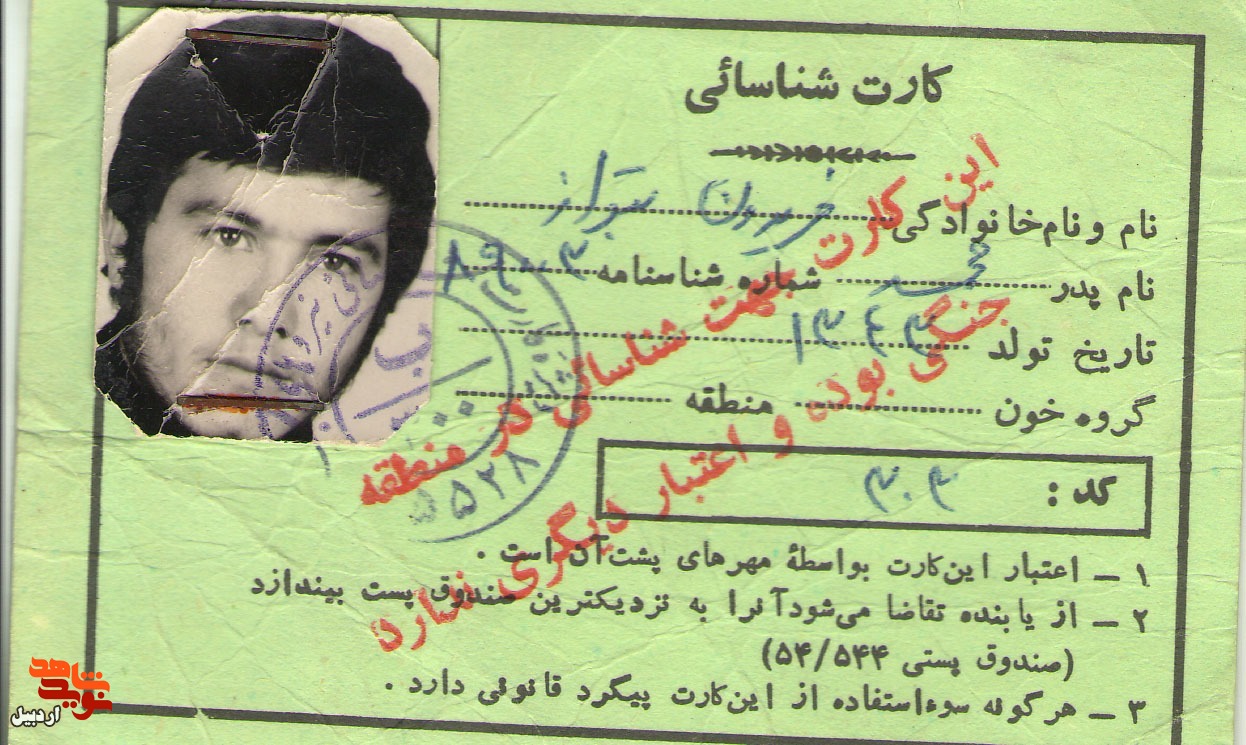 کارت شناسائی
نام و نام‌خانوادگی فریدون
نام پدر محمد شماره شناسنامه
تاریخ تولد ۱۳۴۳
گروه خون منطقه
کد : ۳۰۳
۱ – اعتبار این‌کارت بواسطهٔ مهرهای پشت‌آن است .
۲ – از یابنده تقاضا می‌شودآنرا به نزدیکترین صندوق پست بیندازد
(صندوق پستی ۵۴/۵۴۴)
۳ – هرگونه سوءاستفاده از این‌کارت پیگرد قانونی دارد .
این کارت جهت شناسائی در منطقه
جنگی بوده و اعتبار دیگری ندارد
۵۵۲۸
نوید شاهد
اردبیل